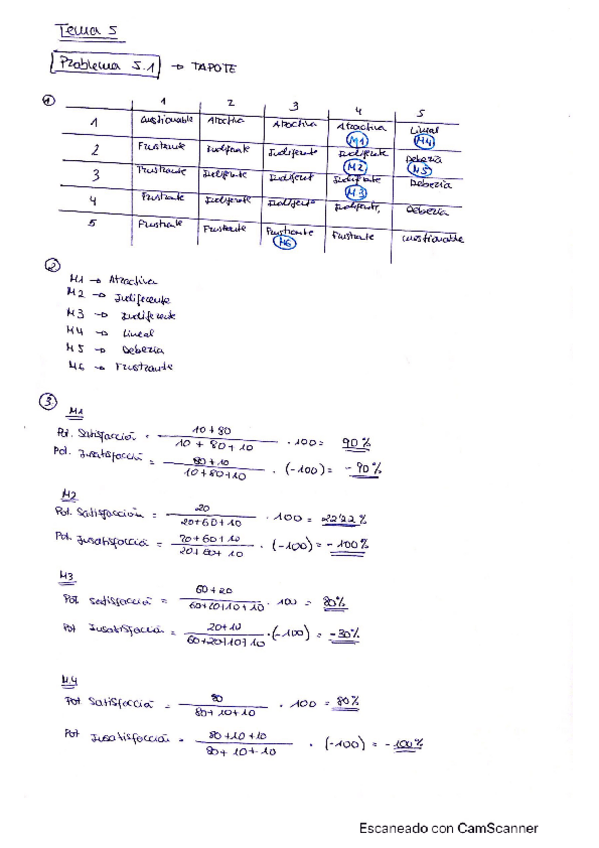 Tema 5
Problema 5.1 → TAPOTE
1
1 2 3 4 5
1 Cuestionable Atractiva Atractiva Atractiva Lineal
M1 M4
2 Frustrante Indiferente Indiferente Indiferente Debería
M2 M5
3 Frustrante Indiferente Indiferent Indiferente Debería
M3
4 Frustrante Indiferente Indiferente Indiferente, Debería
5 Frustrante Frustrante Frustrante Frustrante Cuestionable
M6
2
M1 → Atractiva
M2 → Indiferente
M3 → Indiferente
M4 → Lineal
M5 → Debería
M6 → Frustrante
3
M1
Pot. Satisfacción = 10+80 / 10+80+10 · 100 = 90%
Pot. Insatisfacción = 80+10 / 10+80+10 · (-100) = -90%
M2
Pot. Satisfacción = 20 / 20+60+10 · 100 = 22'22%
Pot. Insatisfacción = 20+60+10 / 20+60+10 · (-100) = -100%
M3
Pot satisfacción = 60+20 / 60+20+10+10 · 100 = 80%
Pot Insatisfacción = 20+10 / 60+20+10+10 · (-100) = -30%
M4
Pot Satisfacción = 80 / 80+10+10 · 100 = 80%
Pot Insatisfacción = 80+10+10 / 80+10+10 · (-100) = -100%
Escaneado con CamScanner